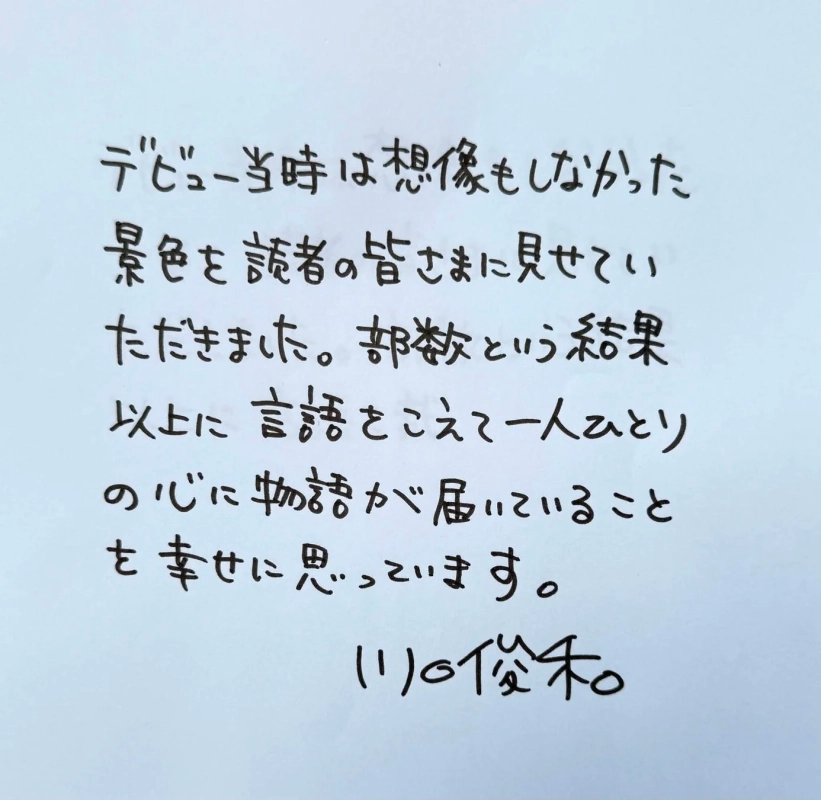 デビュー当時は想像もしなかった
景色を読者の皆さまに見せてい
ただきました。部数という結果
以上に言語をこえて一人ひとり
の心に物語が届いていること
を幸せに思っています。
川口俊和